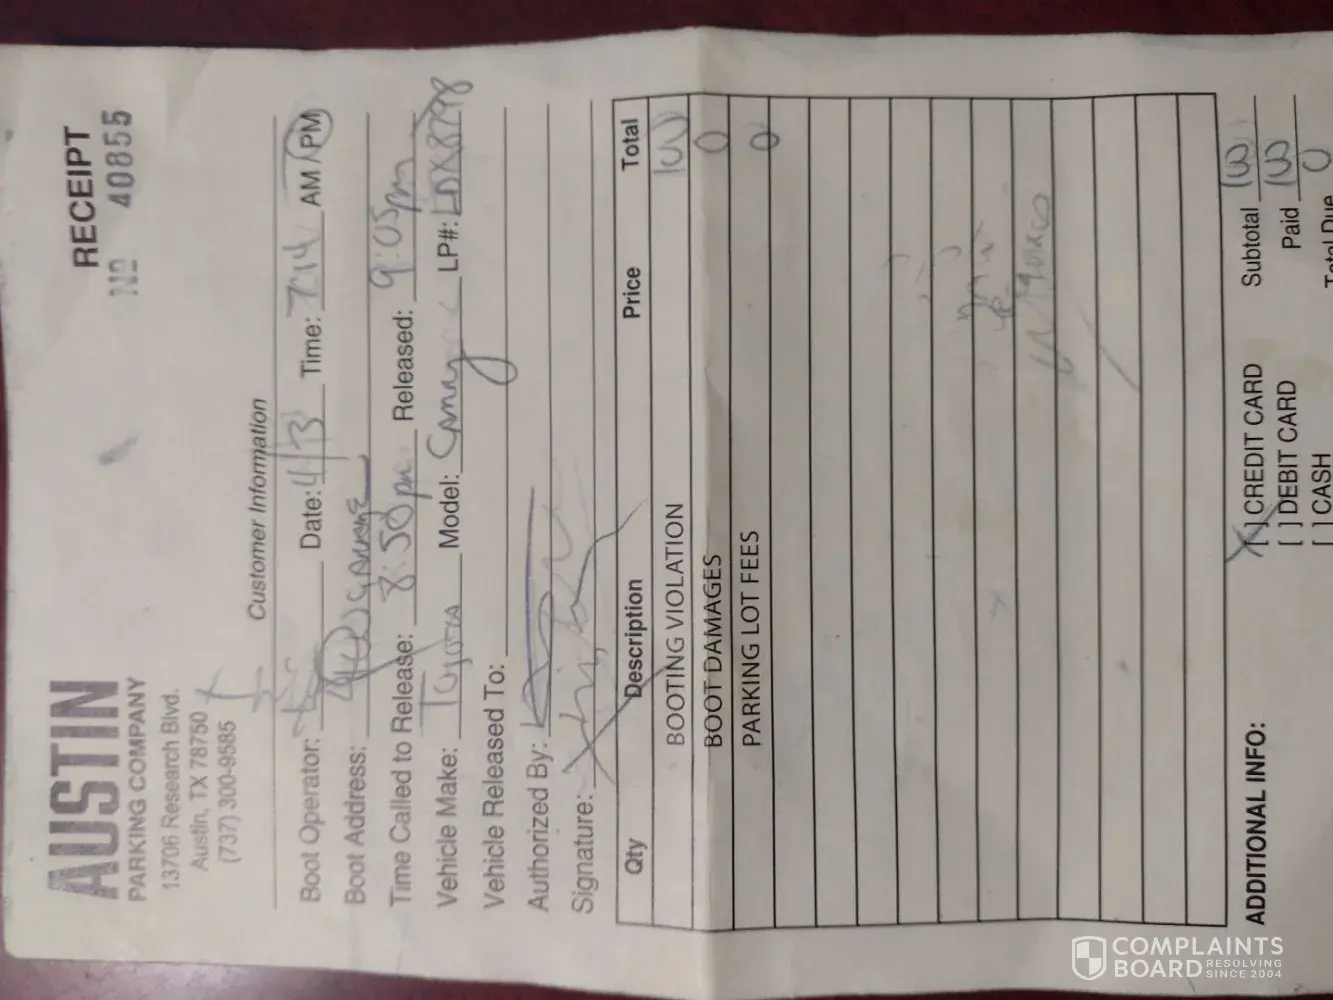 AUSTIN
PARKING COMPANY
13706 Research Blvd.
Austin, TX 78750
(737) 300-9585
RECEIPT
No 40855
Customer Information
Boot Operator: Date: 4/13 Time: 7:14 AM / PM
Boot Address: Garage
Time Called to Release: 8:50pm Released: 9:05pm
Vehicle Make: Toyota Model: Camry LP#: LDX8798
Vehicle Released To:
Authorized By:
Signature: X
Qty Description Price Total
BOOTING VIOLATION 100
BOOT DAMAGES 0
PARKING LOT FEES 0
ADDITIONAL INFO:
[X] CREDIT CARD Subtotal 100
[ ] DEBIT CARD Paid 100
[ ] CASH Total Due 0
COMPLAINTS
BOARD RESOLVING
SINCE 2004